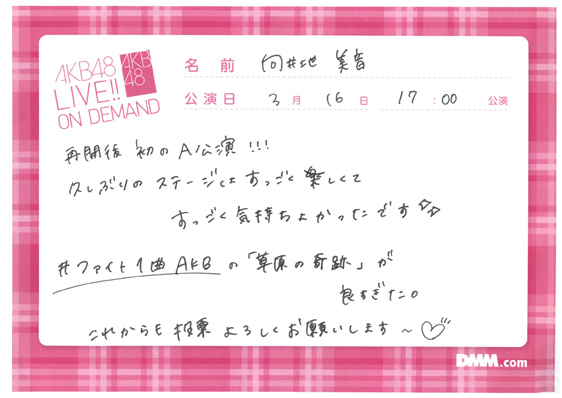 AKB48
LIVE!!
ON DEMAND
AKB
48
名前 向井地 美音
公演日 3月 16日 17:00 公演
再開後 初の A公演!!!
久しぶりの ステージは すっごく 楽しくて
すっごく気持ちよかったです
#ファイト1曲AKB の「草原の奇跡」が
良すぎた。
これからも 投票 よろしくお願いします～♡
DMM.com